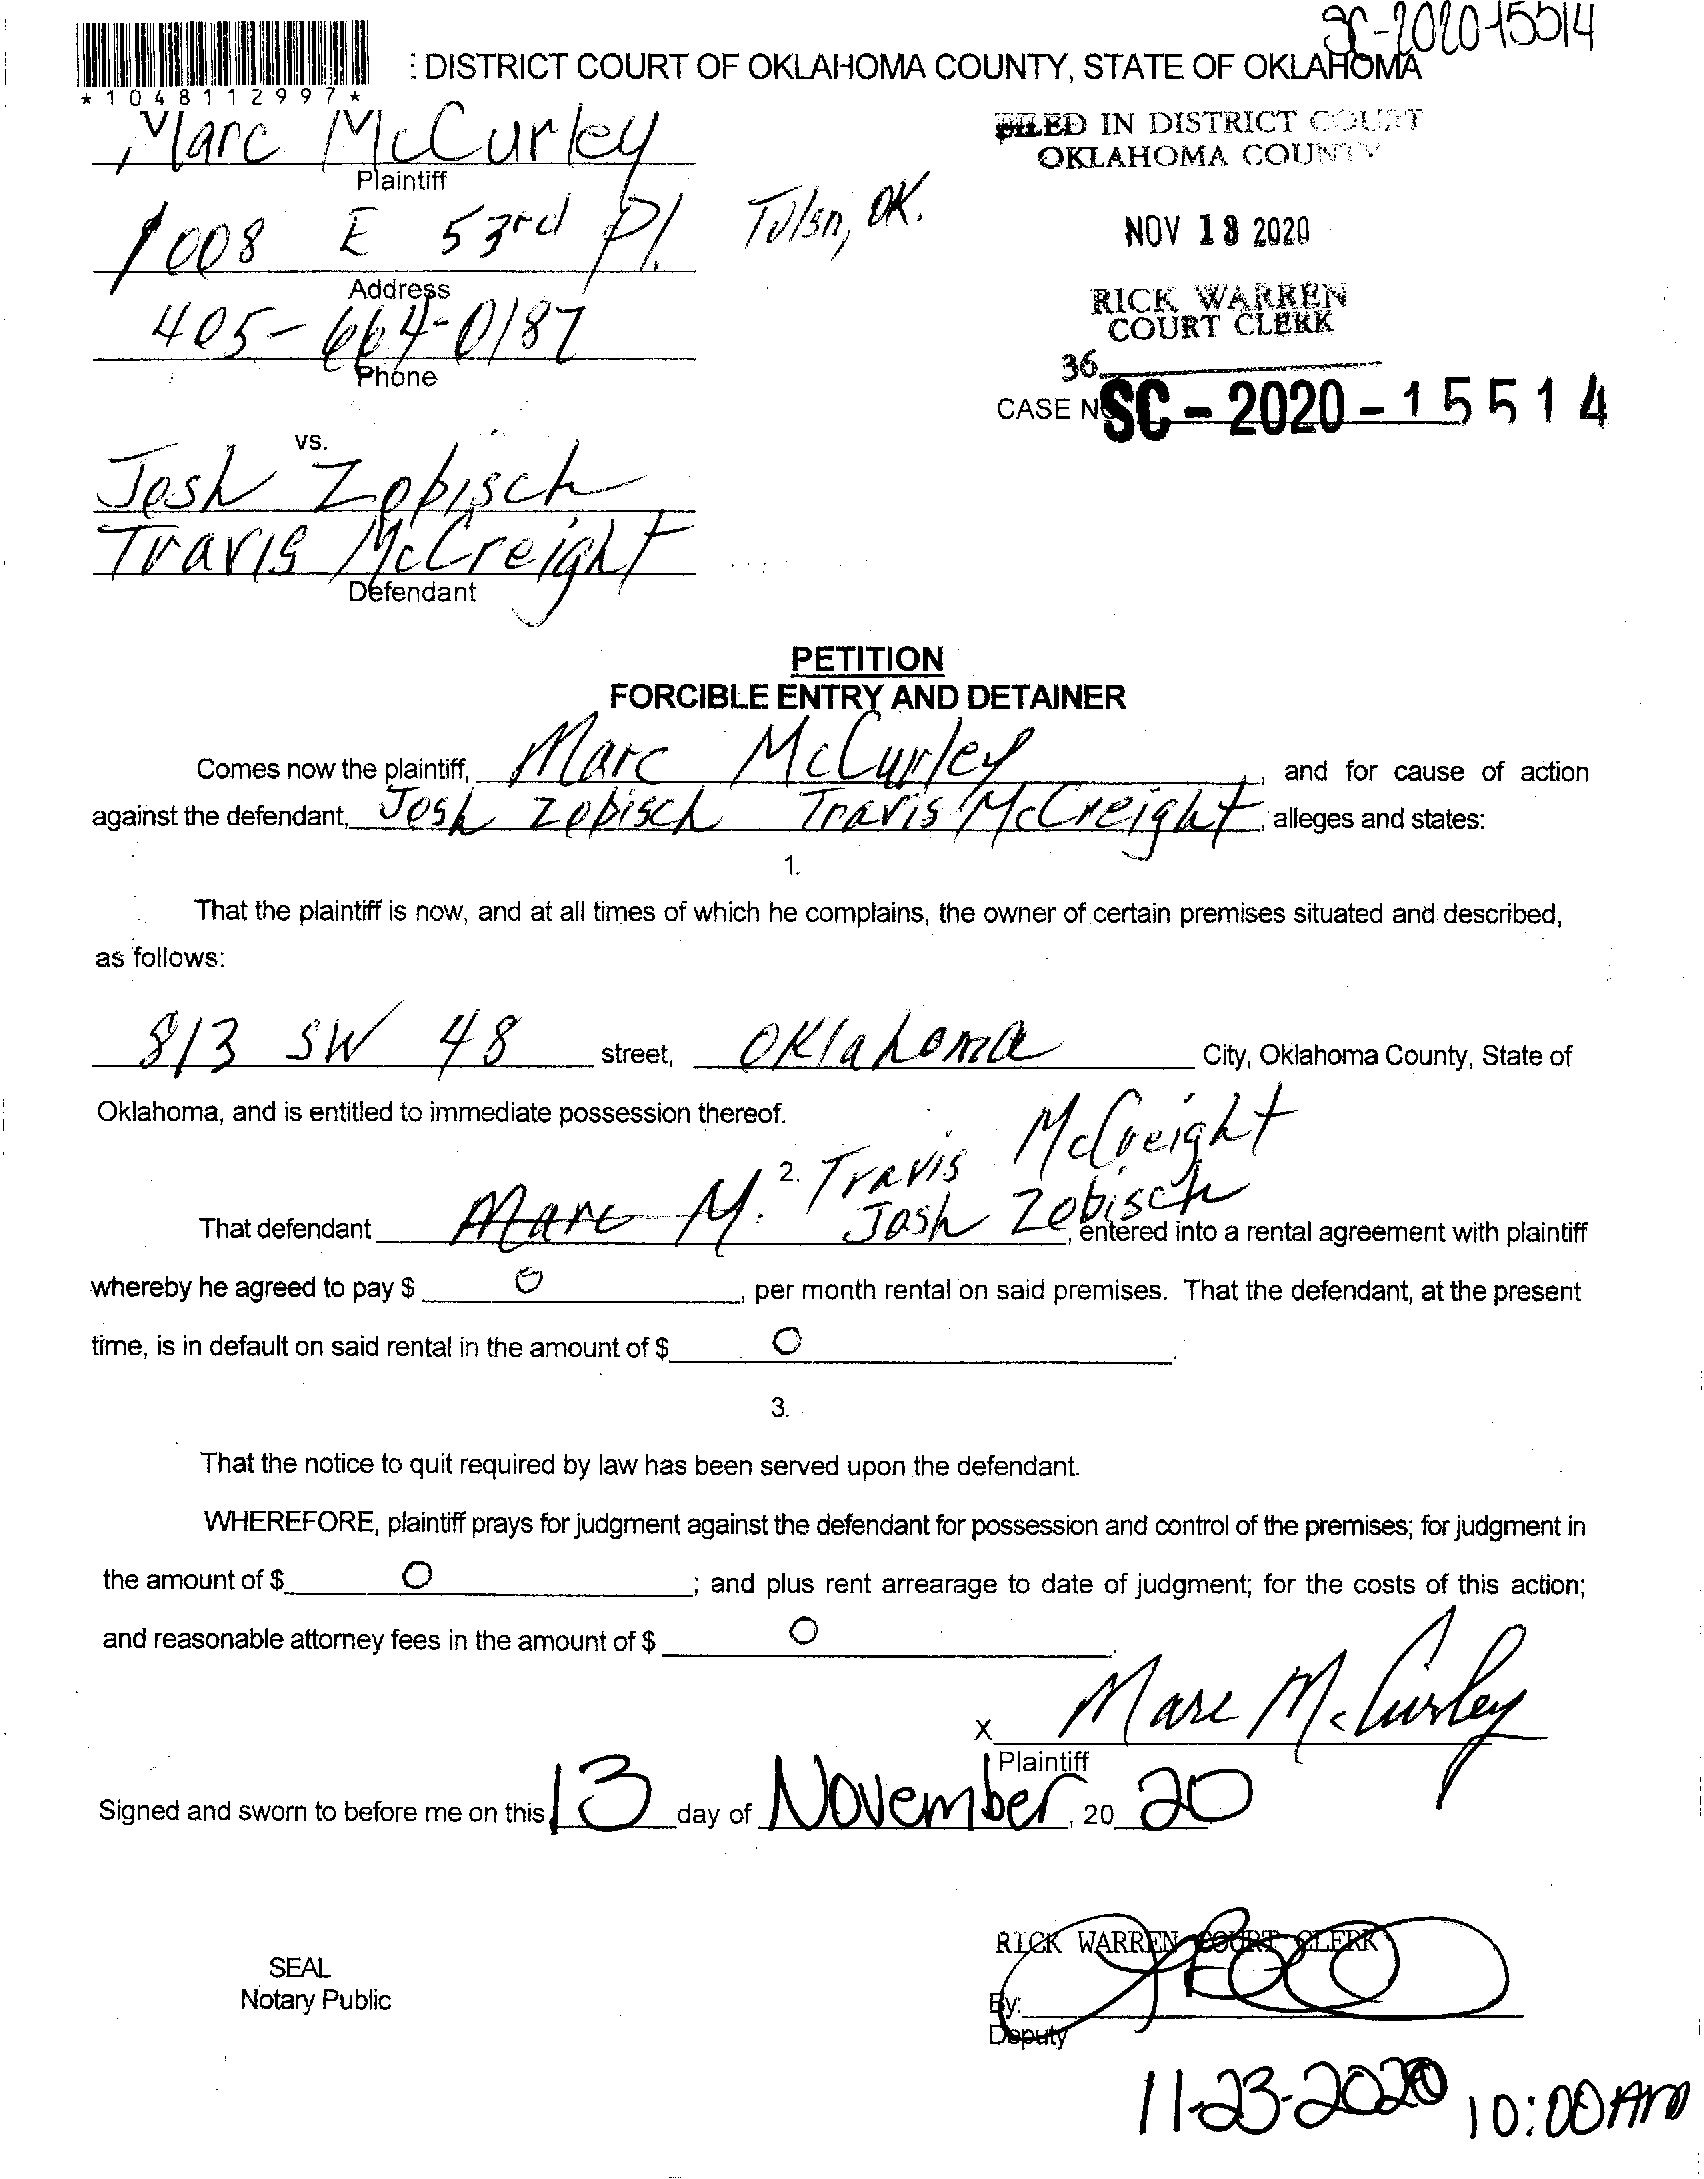 SC-2020-15514
: DISTRICT COURT OF OKLAHOMA COUNTY, STATE OF OKLAHOMA
*1048112997*
Marc McCurley
Plaintiff
FILED IN DISTRICT COURT
OKLAHOMA COUNTY
1008 E 53rd Pl. Tulsa, OK.
Address
NOV 13 2020
405-664-0187
Phone
RICK WARREN
COURT CLERK
36
CASE NO SC-2020-15514
vs.
Josh Zobisch
Travis McCreight
Defendant
PETITION
FORCIBLE ENTRY AND DETAINER
Comes now the plaintiff, Marc McCurley, and for cause of action
against the defendant, Josh Zobisch Travis McCreight, alleges and states:
1.
That the plaintiff is now, and at all times of which he complains, the owner of certain premises situated and described,
as follows:
813 SW 48 street, Oklahoma City, Oklahoma County, State of
Oklahoma, and is entitled to immediate possession thereof.
2. Travis McCreight
That defendant Marc M. Josh Zobisch, entered into a rental agreement with plaintiff
whereby he agreed to pay $ 0, per month rental on said premises. That the defendant, at the present
time, is in default on said rental in the amount of $ 0.
3.
That the notice to quit required by law has been served upon the defendant.
WHEREFORE, plaintiff prays for judgment against the defendant for possession and control of the premises; for judgment in
the amount of $ 0; and plus rent arrearage to date of judgment; for the costs of this action;
and reasonable attorney fees in the amount of $ 0.
X Marc McCurley
Plaintiff
Signed and sworn to before me on this 13 day of November, 20 20
RICK WARREN COURT CLERK
SEAL
Notary Public
By:
Deputy
11-23-2020 10:00AM